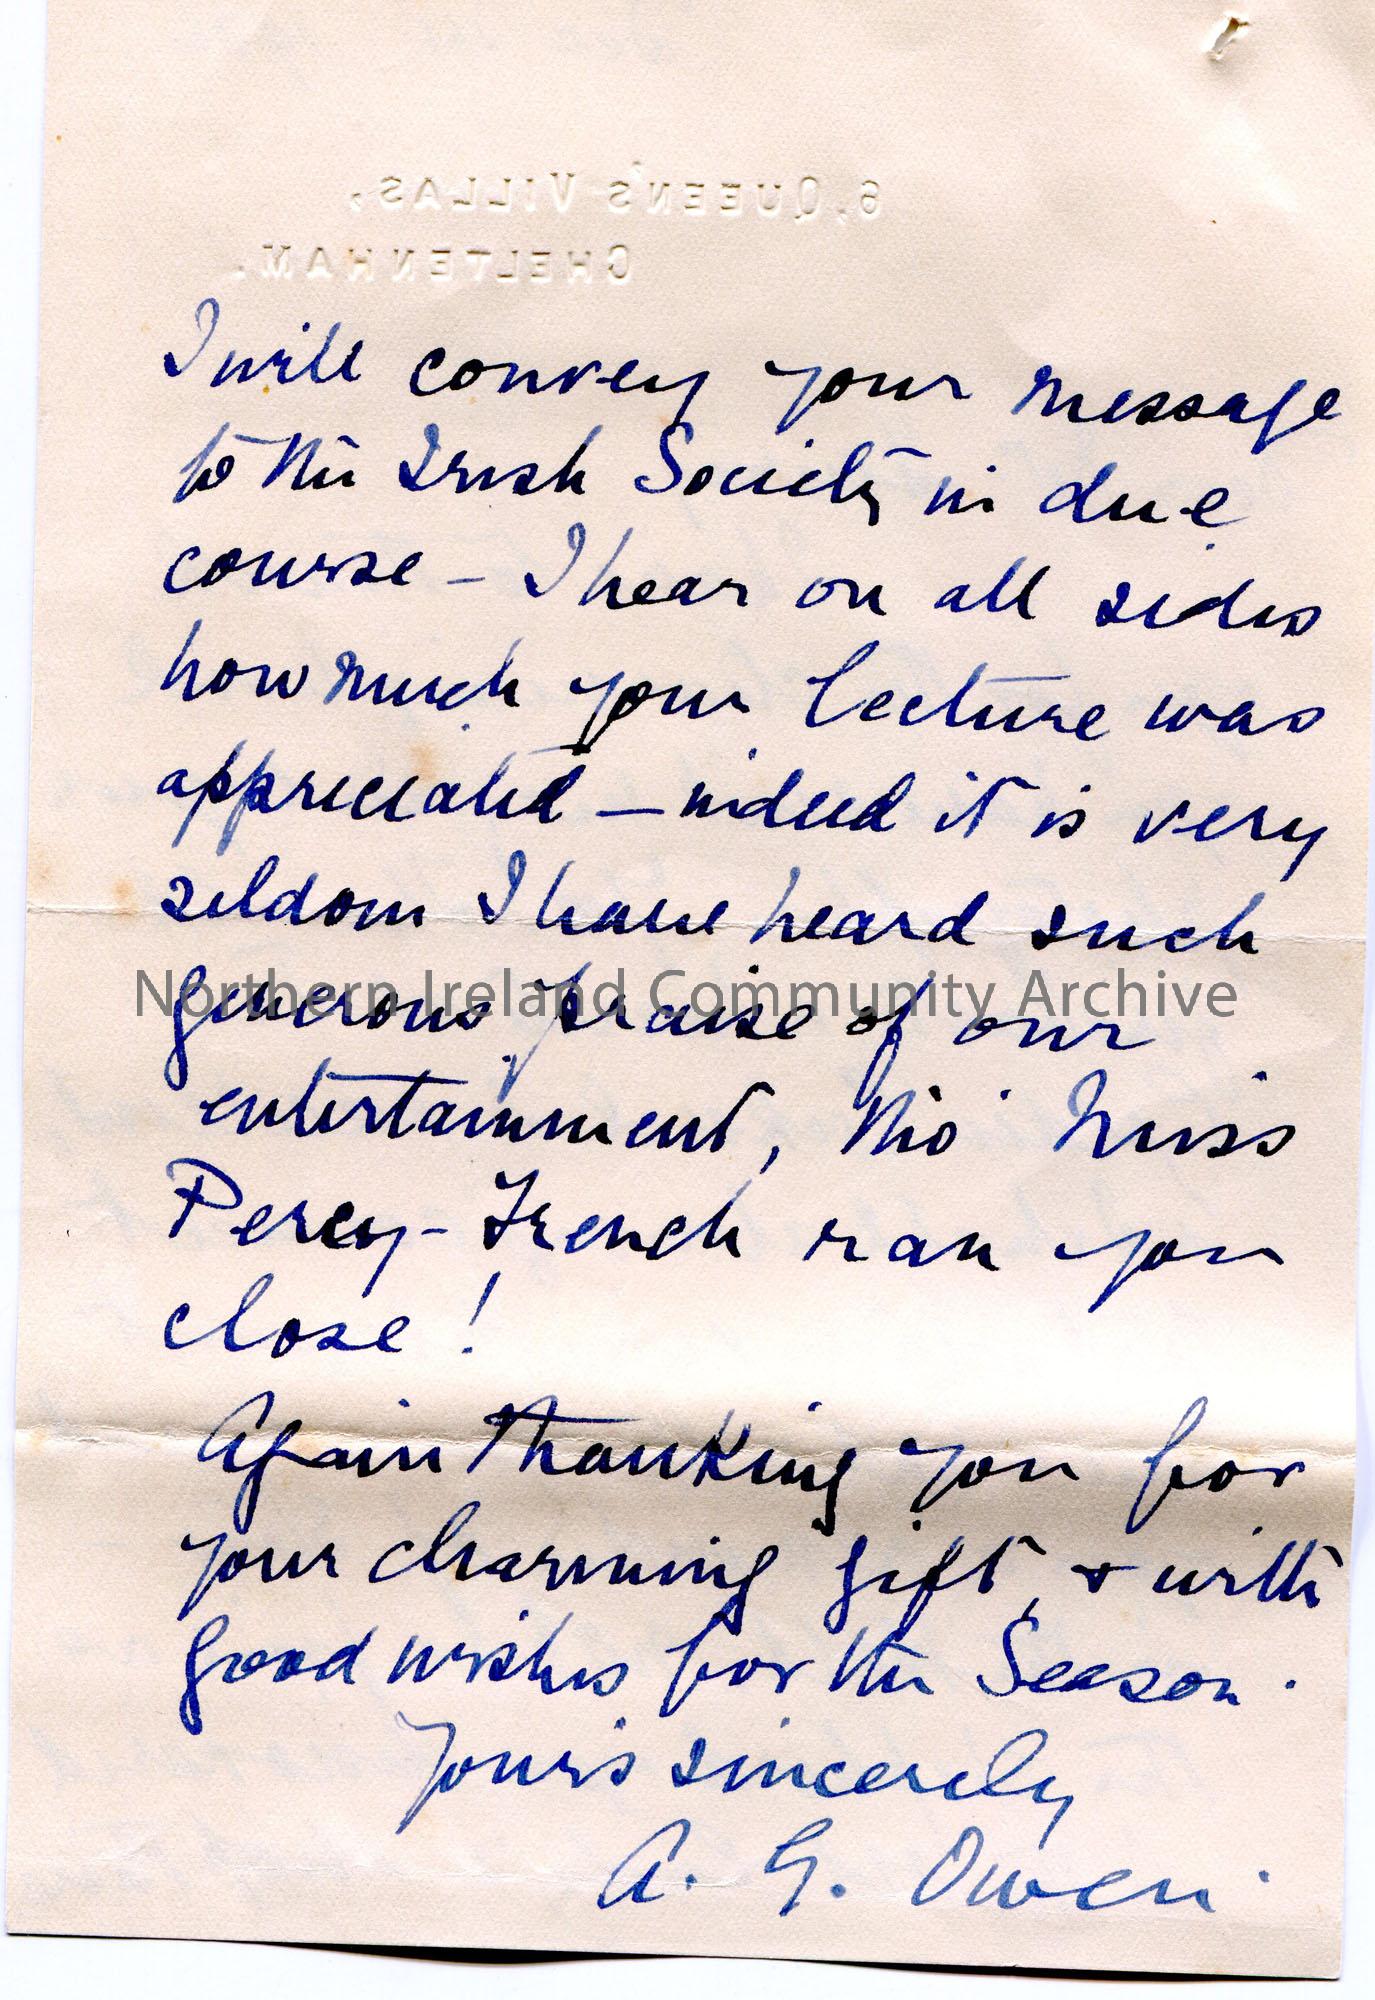 6, QUEEN'S VILLAS,
CHELTENHAM.
I will convey your message
to the Irish Society in due
course – I hear on all sides
how much your lecture was
appreciated – indeed it is very
seldom I have heard such
generous praise of our
entertainment, tho' Miss
Percy-French ran you
close!
Again thanking you for
your charming gift, & with
good wishes for the Season.
Your's sincerely
A. G. Owen.
Northern Ireland Community Archive